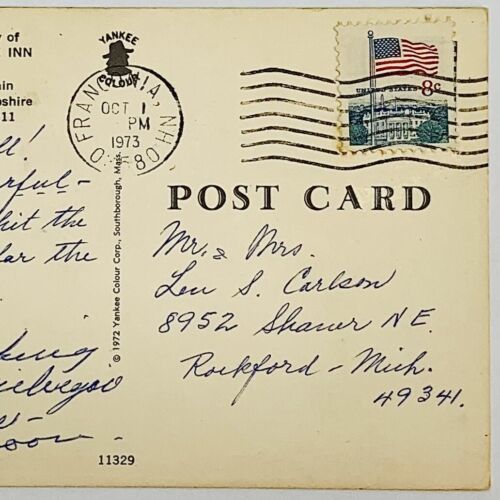 y of
E INN
YANKEE
COLOUR
ain
pshire
11
FRANCONIA, NH
OCT 1
PM
1973
03580
UNITED STATES 8c
ll!
erful-
hit the
far the
POST CARD
Mr. & Mrs.
Len S. Carlson
8952 Shaner N E.
Rockford - Mich.
49341.
© 1972 Yankee Colour Corp., Southborough, Mass.
king
oon.
11329